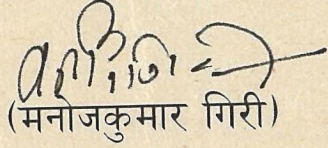 (मनोजकुमार गिरी)